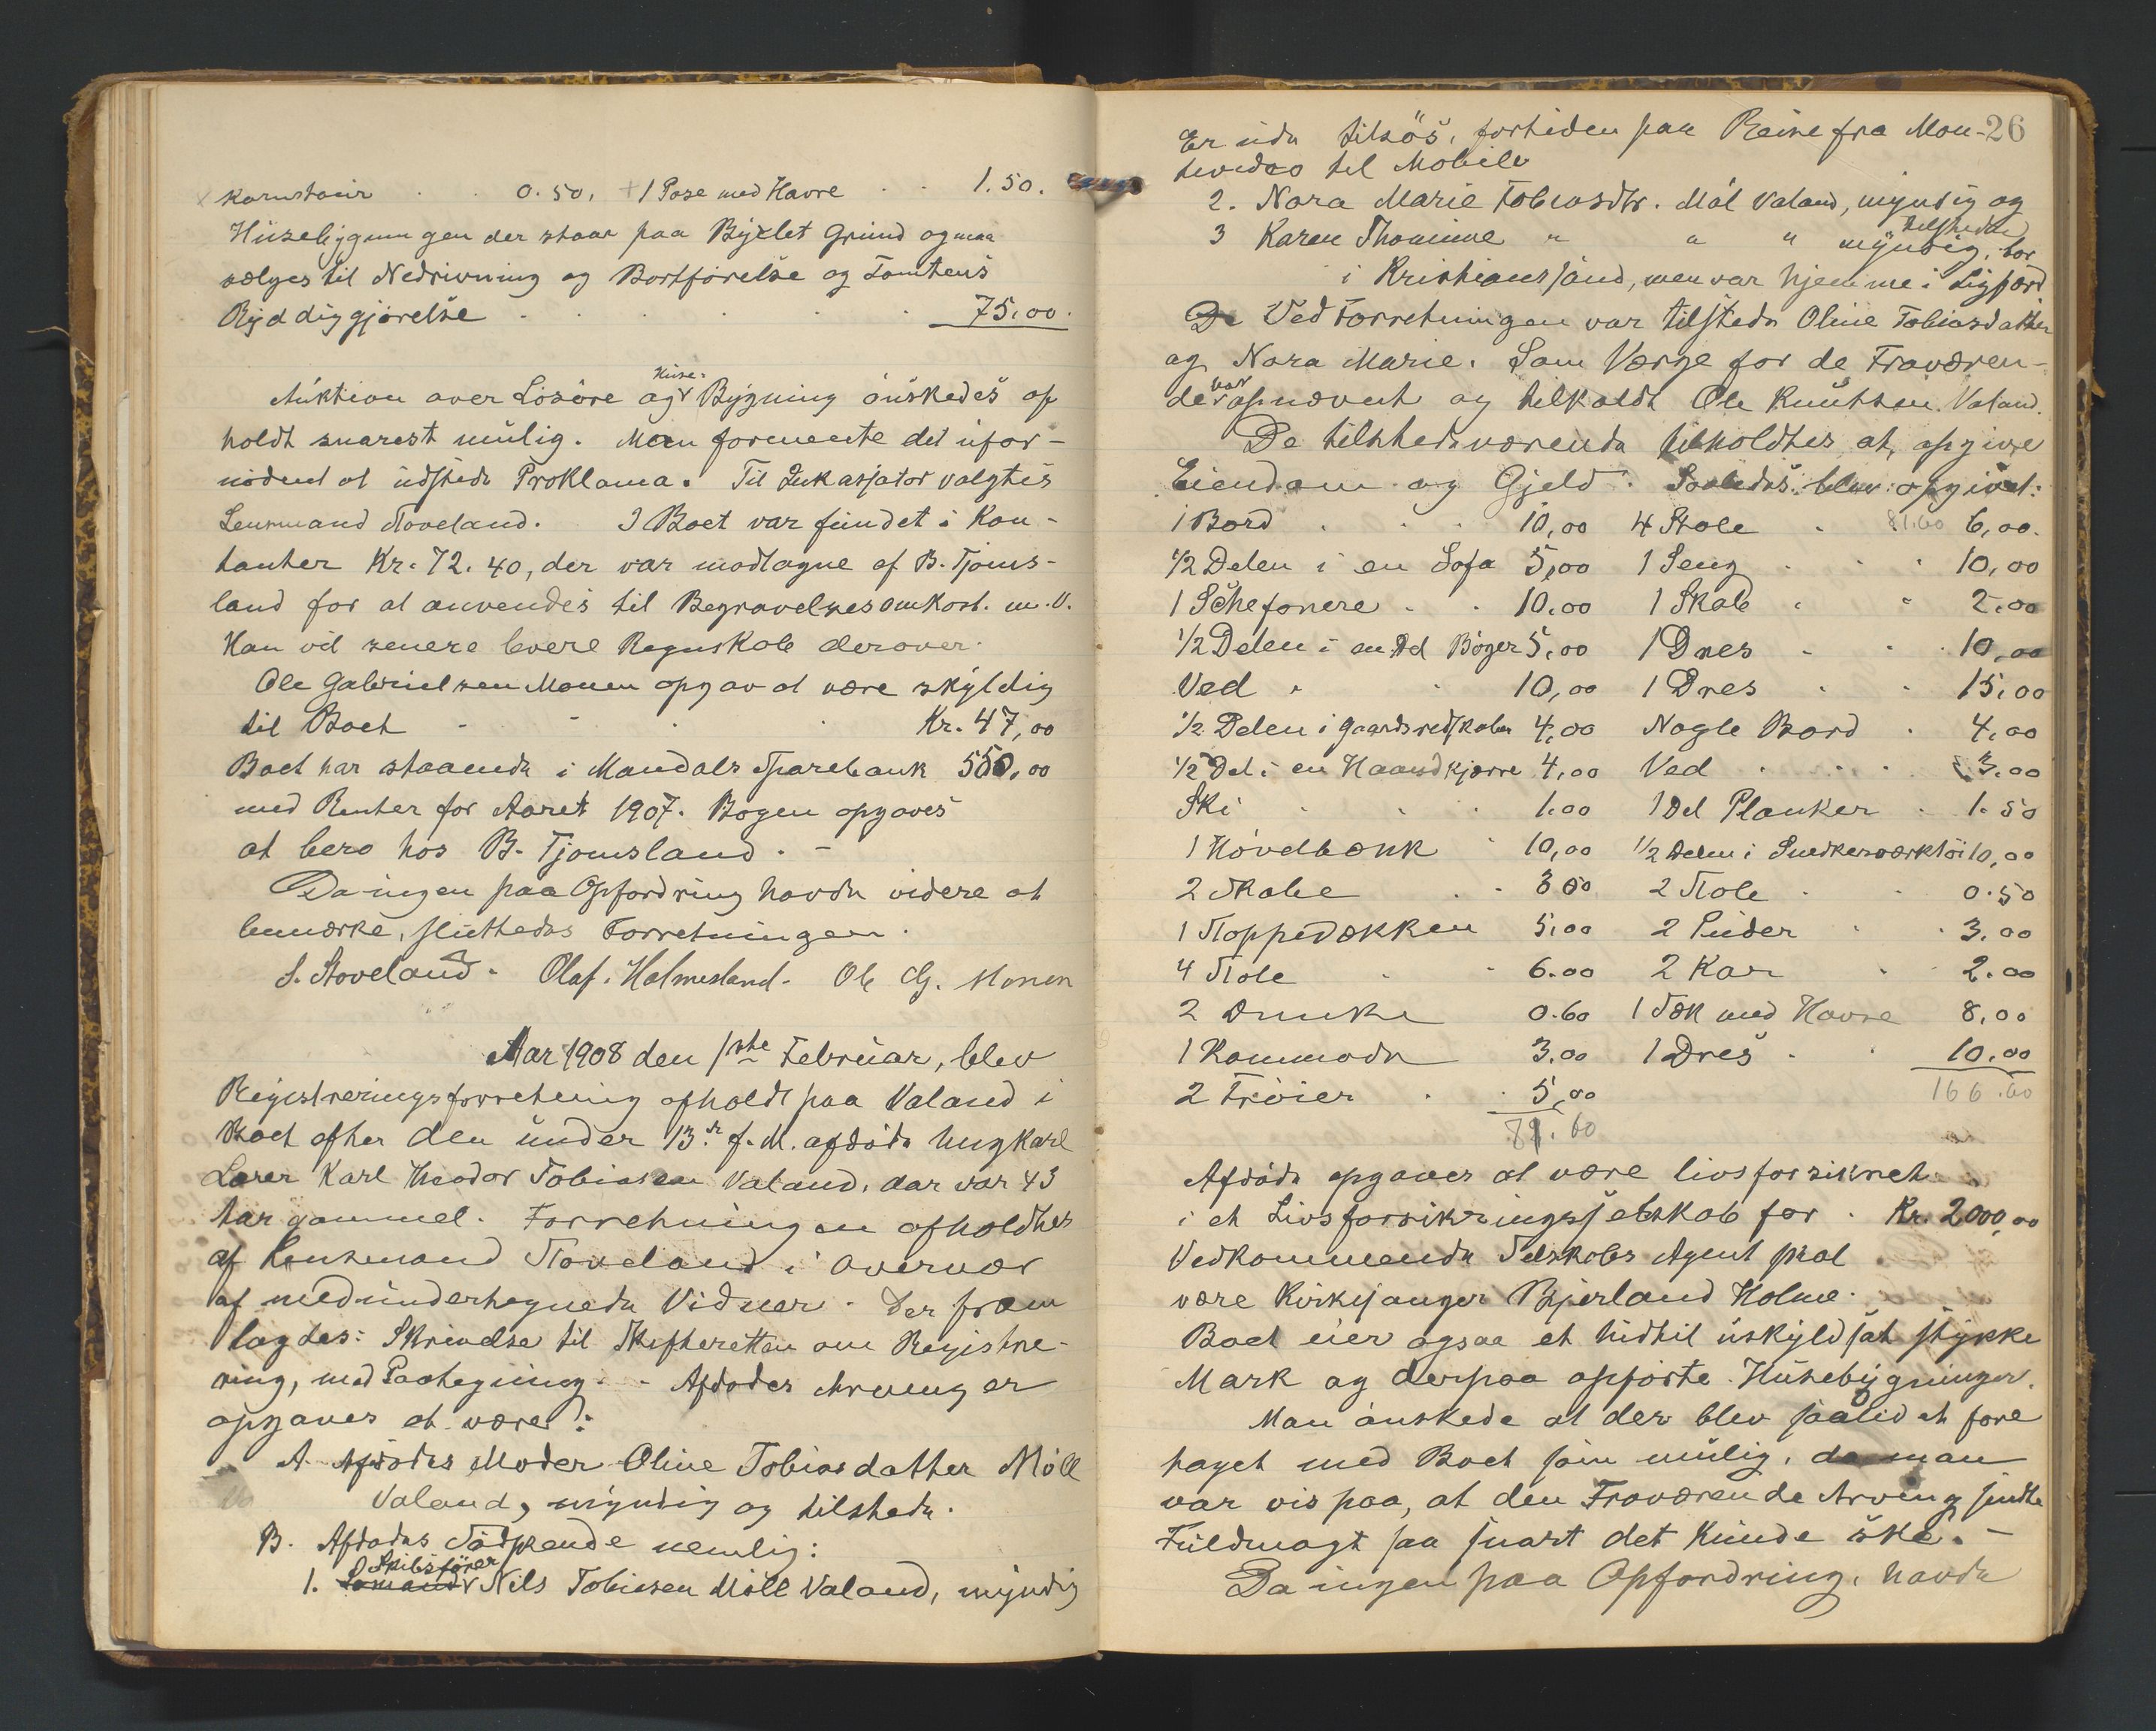 Kornstair . . 0.50, + 1 Pose med Havre . . 1.50.
Husebygningen der staar paa Byxlet Grund og maa
sælges til Nedrivning og Bortførelse og Tomtens
Ryddiggjørelse . . . . . . 75.00.
Auktion over Løsøre og Huse-Bygning ønskedes op
holdt snarest mulig. Man formeente det ufor-
nødent at udstede Proklama. Til Inkasjator valgtes
Lensmand Stoveland. I Boet var fundet i Kon-
tanter Kr. 72.40, der var modtagne af B. Tjoms-
land for at anvendes til Begravelsesomkost. m.V.
Han vil senere levere Regnskab derover.
Ole Gabrielsen Monen opgav at være skyldig
til Boet . . . Kr. 47,00
Boet har staaende i Mandals Sparebank 550,00
med Renter for Aaret 1907. Bogen opgaves
at bero hos B. Tjomsland. -
Da ingen paa Opfordring havde videre at
bemærke, sluttedes Forretningen.
S. Stoveland. Olaf. Holmesland. Ole G. Monen
Aar 1908 den 1ste Februar, blev
Registreringsforretning afholdt paa Valand i
Boet efter den under 13de f. M. afdøde Ungkarl
Lærer Karl Theodor Tobiassen Valand, der var 43
Aar gammel. Forretningen afholdtes
af Lensmand Stoveland i Overvær
af medundertegnede Vidner. Der frem
lagdes: Skrivelse til Skifteretten om Registre-
ring, med Paategning. - Afdødes Arving er
opgaves at være:
A. Afdødes Moder Oline Tobiasdatter Møll
Valand, myndig og tilstede.
B. Afdødes Sødskende nemlig:
Skibsfører
1. Sømand Nils Tobiasen Møll Valand, myndig
26
Er ude tilsøs, fortiden paa Reise fra Mon-
tevideo til Mobile
2. Nora Marie Tobiasdtr. Møl Valand, myndig og
tilstede
3 Karen Thomine " " " myndig, bor
i Kristianssand, men var hjemme i Ligfærd
De Ved Forretningen var tilstede Oline Tobiasdatter
og Nora Marie. Som Værge for de Fraværen-
de var opnævnt og tilkaldt Ole Knutsen Valand.
De tilstedeværende tilholdtes at opgive
Eiendom og Gjeld. Saaledes blev opgivet:
1 Bord . . . 10,00 4 Stole . 81.60 6,00.
1/2 Delen i en Sofa 5,00 1 Seng . . . 10,00
1 Schefonere . . 10.00 1 Skab . . 2.00
1/2 Delen i en Del Bøger 5,00 1 Dres . . . 10,00
Ved . . 10,00 1 Dres . . 15,00
1/2 Delen i Gaardsredskaber 4,00 Nogle Bord . 4,00
1/2 Del i en Haandkjærre 4,00 Ved . . . 3.00
Ski . . . 1.00 1 Del Planker . 1.50
1 Høvelbænk . 10,00 1/2 Delen i Snedkerværktøi 10,00
2 Skabe . . 3 00 2 Stole . . 0.50
1 Stoppedækken 5,00 2 Puder . . 3.00
4 Stole . . 6.00 2 Kar . 2.00
2 Dunke 0.60 1 Sæk med Havre 8,00
1 Kommode 3.00 1 Dres . . 10.00
2 Trøier . . 5,00 166.60
81.60
Afdøde opgaves at være livsforsikret
i et Livsforsikringsselskab for . Kr. 2000,00
Vedkommende Selskabs Agent skal
være Kirkesanger Bjerland Holme.
Boet eier ogsaa et hidtil uskyldsat stykke
Mark og derpaa opførte Husebygninger.
Man ønskede at der blev saalidet fore
taget med Boet som mulig, da man
var vis paa, at den Fraværende Arving sendte
Fuldmagt saa snart det kunde ske. -
Da ingen paa Opfordring, havde